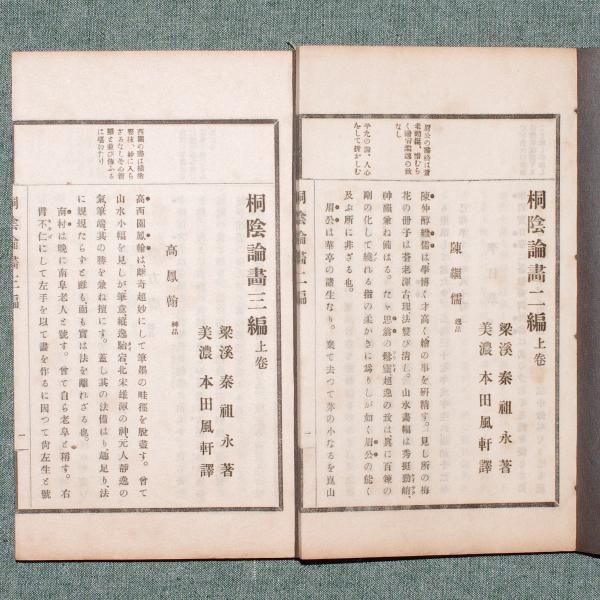 眉公の
桐陰論畫二編 上卷
梁溪 秦祖永著
美濃 本田風軒譯
陳繼儒 逸品
陳仲醇繼儒は學博く才高く繪の事を研精す。見し所の梅
花の冊子は蒼老渾古現法雙び淸し。山水畫幅は秀挺勁峭、
剛の化して繞れる指の柔かさに爲りしが如く眉公の能く
及ぶ所に非ざる也。
眉公は華亭の諸生なり。棄て去つて茅の小なるを崑山
桐陰論畫二編
一
桐陰論畫三編 上卷
梁溪 秦祖永著
美濃 本田風軒譯
高鳳翰 神品
高西園鳳翰は離奇超妙にして筆墨の畦徑を脫盡す。曾て
山水小幅を見しが筆意縱逸駘宕北宋雄渾の神、元人靜逸の
氣筆端其の勝を兼ね擅にす。蓋し其の法備はり趣足り、法
に規規たらずと雖も、而も實は法を離れざる也。
南村は晚に南阜老人と號す。曾て自ら老阜と稱す。右
臂不仁にして左手を以て畫を作るに因つて尙左生と號
桐陰論畫三編
一